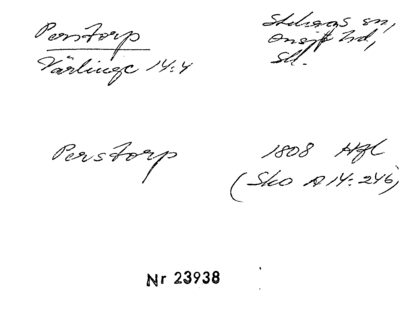 Perstorp
Värlinge 14:4
Stehags sn,
Onsjö hd,
Sk.
Perstorp
1808 Hfl
(Sko A14:246)
Nr 23938